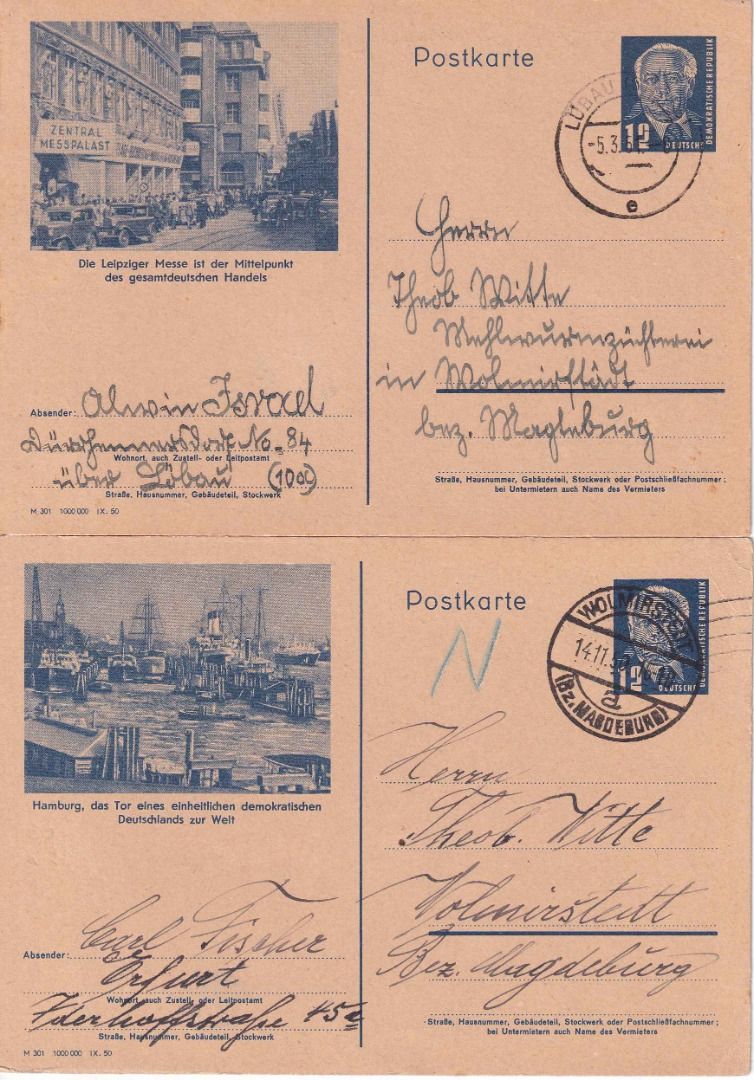 ZENTRAL
MESSPALAST
Die Leipziger Messe ist der Mittelpunkt
des gesamtdeutschen Handels
Absender: Alwin Israel
Dürrhennersdorf No. 84
Wohnort, auch Zustell- oder Leitpostamt
über Löbau (10a)
Straße, Hausnummer, Gebäudeteil, Stockwerk
M 301 1000000 IX. 50
Postkarte
12
DEUTSCHE
DEMOKRATISCHE REPUBLIK
LÖBAU
-5.3.51
e
Herrn
Theob Witte
Mehlwurmzüchterei
in Wolmirstädt
bez. Magdeburg
Straße, Hausnummer, Gebäudeteil, Stockwerk oder Postschließfachnummer;
bei Untermietern auch Name des Vermieters
Hamburg, das Tor eines einheitlichen demokratischen
Deutschlands zur Welt
Absender: Carl Fischer
Erfurt
Wohnort, auch Zustell- oder Leitpostamt
45a
Straße, Hausnummer, Gebäudeteil, Stockwerk
M 301 1000000 IX. 50
Postkarte
N
12
DEUTSCHE
DEMOKRATISCHE REPUBLIK
WOLMIRSTEDT
14.11.
a
(BZ. MAGDEBURG)
Herrn
Theob. Witte
Wolmirstedt
Bez. Magdeburg
Straße, Hausnummer, Gebäudeteil, Stockwerk oder Postschließfachnummer;
bei Untermietern auch Name des Vermieters